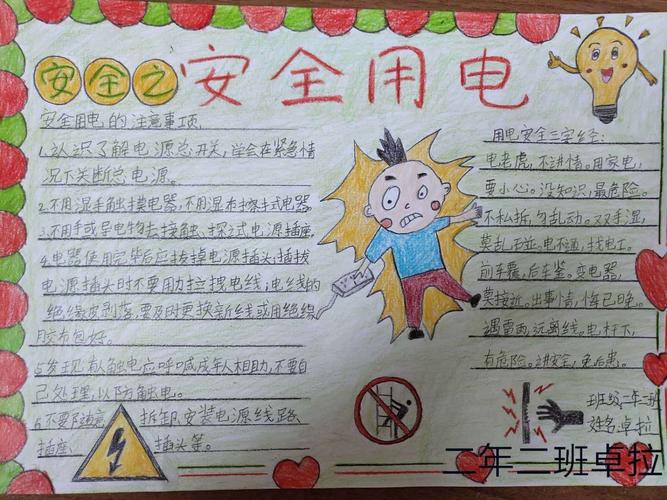 安全之安全用电
安全用电的注意事项
1.认识了解电源总开关,学会在紧急情
况下关断总电源。
2.不用湿手触摸电器,不用湿布擦拭电器
3.不用手或导电物去接触、探试电源插座
4.电器使用完毕后应拔掉电源插头;插拔
电源插头时不要用力拉拽电线;电线的
绝缘皮剥落,要及时更换新线或用绝缘
胶布包好。
5.发现有人触电应呼喊成年人相助,不要自
己处理,以防触电。
6.不要随意拆卸、安装电源线路、
插座、插头等。
用电安全三字经:
电老虎,不讲情。用家电,
要小心。没知识,最危险。
不私拆,勿乱动。双手湿,
莫乱碰。电不通,找电工。
前车覆,后车鉴。变电器,
莫接近。出事情,悔已晚。
遇雷雨,远离线。电杆下,
有危险。讲安全,免后患。
班级:二年二班
姓名:卓拉
二年二班卓拉